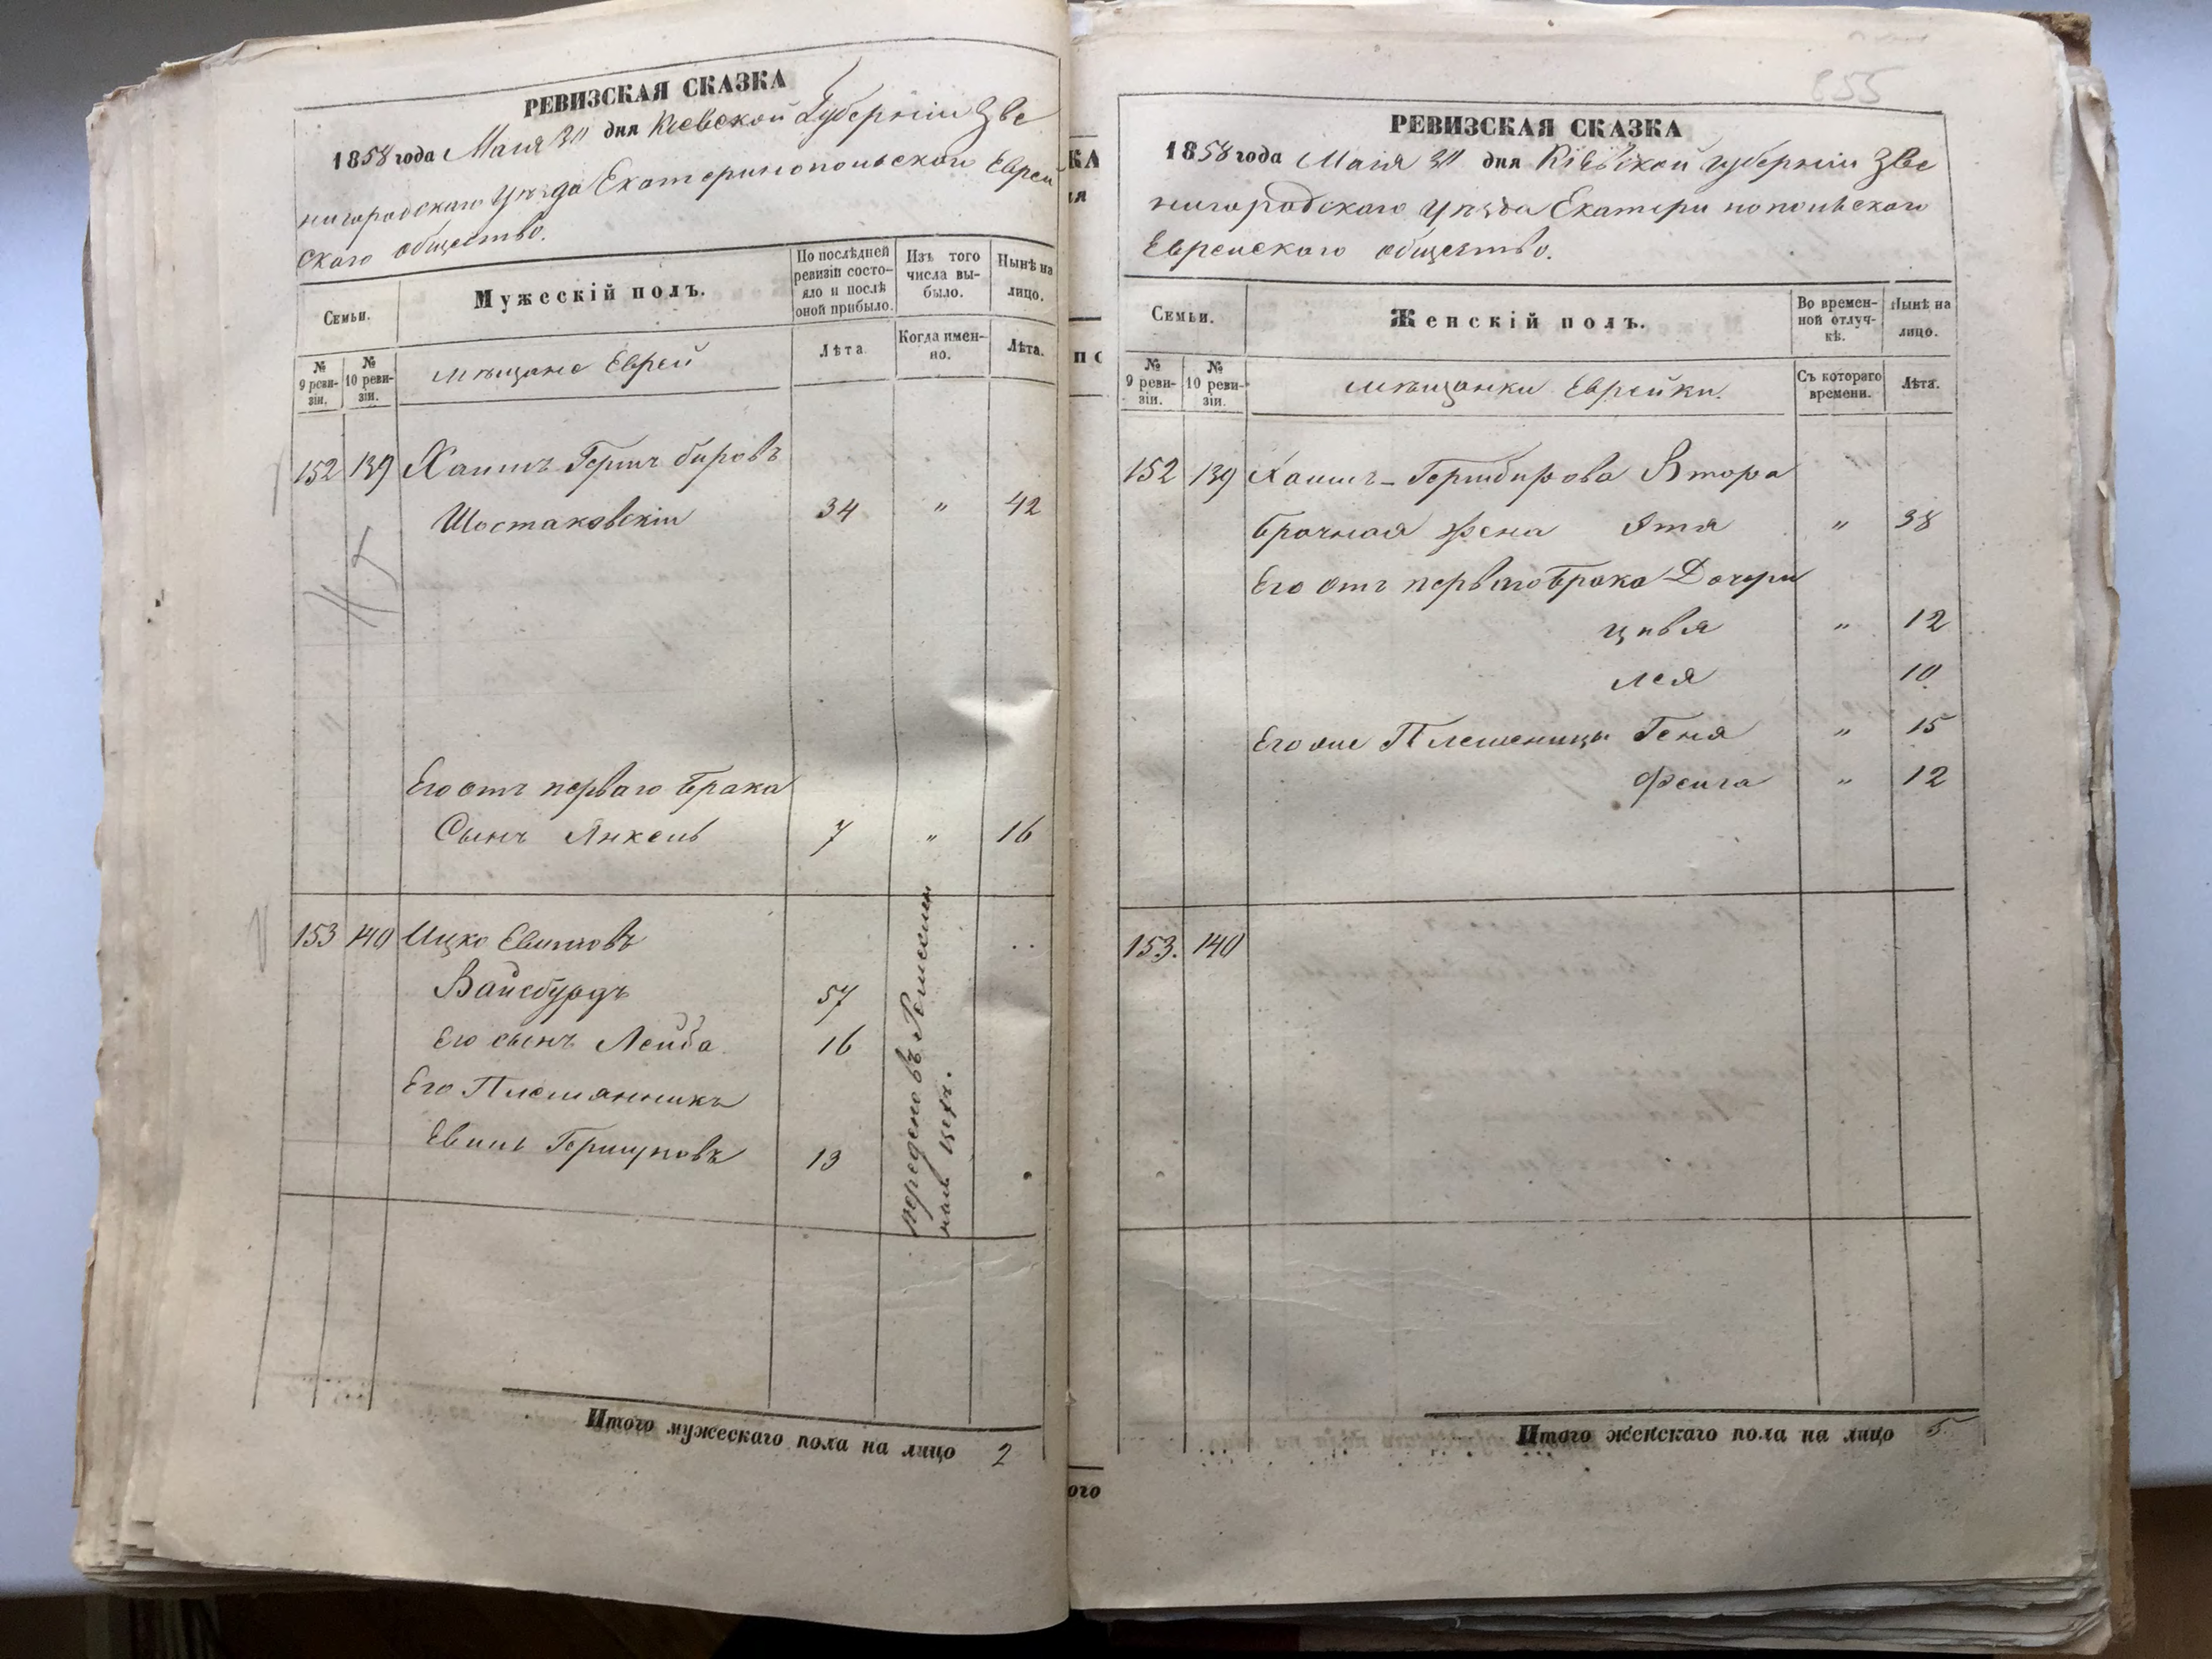 РЕВИЗСКАЯ СКАЗКА
1858 года Маія 30 дня Кіевской Губерніи Зве
нигородскаго Уѣзда Екатеринопольскаго Еврей
скаго общество.
Семьи.
Мужескій полъ.
По послѣдней ревизіи состояло и послѣ оной прибыло.
Изъ того числа выбыло.
Нынѣ на лицо.
№ 9 ревизіи.
№ 10 ревизіи.
мѣщане Евреи
Лѣта.
Когда именно.
Лѣта.
152 139 Хаимъ Герш бировъ
Шостаковскій 34 " 42
Его отъ перваго брака
Сынъ Янкель 7 " 16
153 140 Ицко Евиловъ
Вайсбурдъ 57
Его сынъ Лейба 16
Его Племянникъ
Евиль Гершковъ 13
переденовъ Ремеслен
ный цехъ.
Итого мужескаго пола на лицо 2
КА
ія
по
ого
855
РЕВИЗСКАЯ СКАЗКА
1858 года Маія 30 дня Кіевской губерніи Зве
нигородскаго уѣзда Екатеринопольскаго
Еврейскаго общество.
Семьи.
Женскій полъ.
Во временной отлучкѣ.
Нынѣ на лицо.
№ 9 ревизіи.
№ 10 ревизіи.
мѣщанки Еврейки.
Съ котораго времени.
Лѣта.
152 139 Хаимъ-Гершбирова Втора
брачная жена Этя " 38
Его отъ перваго брака Дочери
цивя " 12
лея 10
Его же Племеницы Геня " 15
Фейга " 12
153. 140
Итого женскаго пола на лицо 5